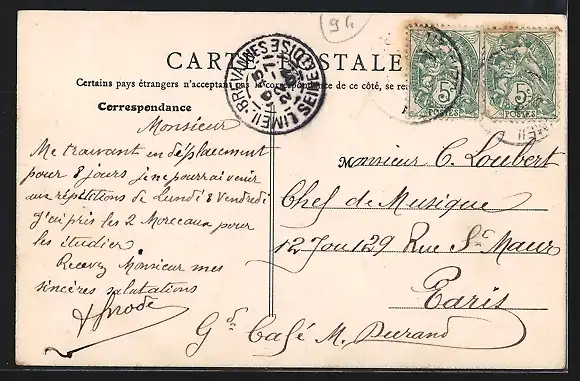 94
CARTE POSTALE
Certains pays étrangers n'acceptant pas la correspondance de ce côté, se re
Correspondance
LIMEIL-BREVANNES SEINE ET OISE
5 C
POSTES
5 C
POSTES
Monsieur
Me trouvant en déplacement
pour 8 jours je ne pourrai venir
aux répétitions de Lundi & Vendredi
J'ai pris les 2 Morceaux pour
les étudier
Recevez Monsieur mes
sincères salutations
Monsieur C. Loubert
Chef de Musique
127 ou 129 Rue St Maur
Paris
Gd Café M. Durand